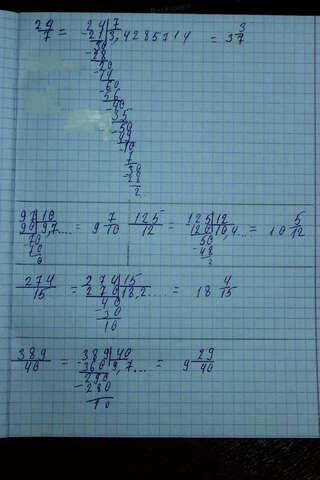 24/7 = 24 | 7 = 3 3/7
-21 | 3,4285714
30
-28
20
-14
60
-56
40
-35
-50
49
-10
7
30
-28
2
97 | 10 = 9 7/10 125/12 = 125 | 12 = 10 5/12
90 | 9,7.... 120 | 10,4...
70 50
70 -48
0 2
274/15 = 274 | 15 = 18 4/15
270 | 18,2....
40
-30
10
389/40 = 389 | 40 = 9 29/40
-360 | 9,7...
290
-280
10